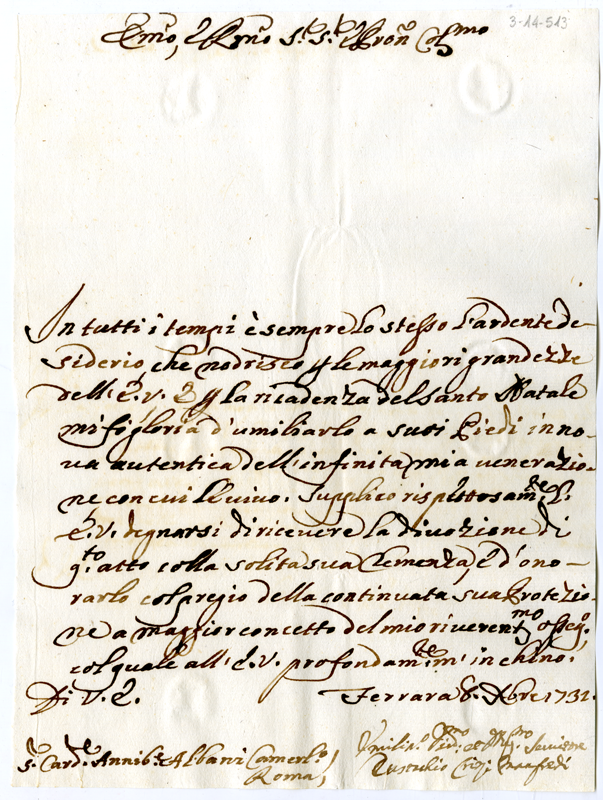 3-14-513
Emo, e Rmo Sr. Sr. e Pron Colmo
In tutti i tempi è sempre lo stesso l'ardente de-
siderio, che nodrisco p le maggiori grandezze
dell'E.V. E p la ricadenza del Santo Natale
mi fò gloria d'umiliarlo a suoi Piedi in no-
va autentica dell'infinita mia venerazio-
ne con cui le vivo. Supplico rispettosamte l'
E.V. degnarsi di ricevere la divozione di
qto atto colla solita sua Clemenza, e d'ono-
rarlo col pregio della continuata sua Protezio-
ne a maggior concetto del mio riverentmo osseqo.
col quale all'E.V. profondamte m'inchino.
Di V.E. Ferrara 8. Xbre 1732.
Sr. Carde Annibe Albani Camerlo
Roma
Umilissmo Servitore
Eustachio Manfredi